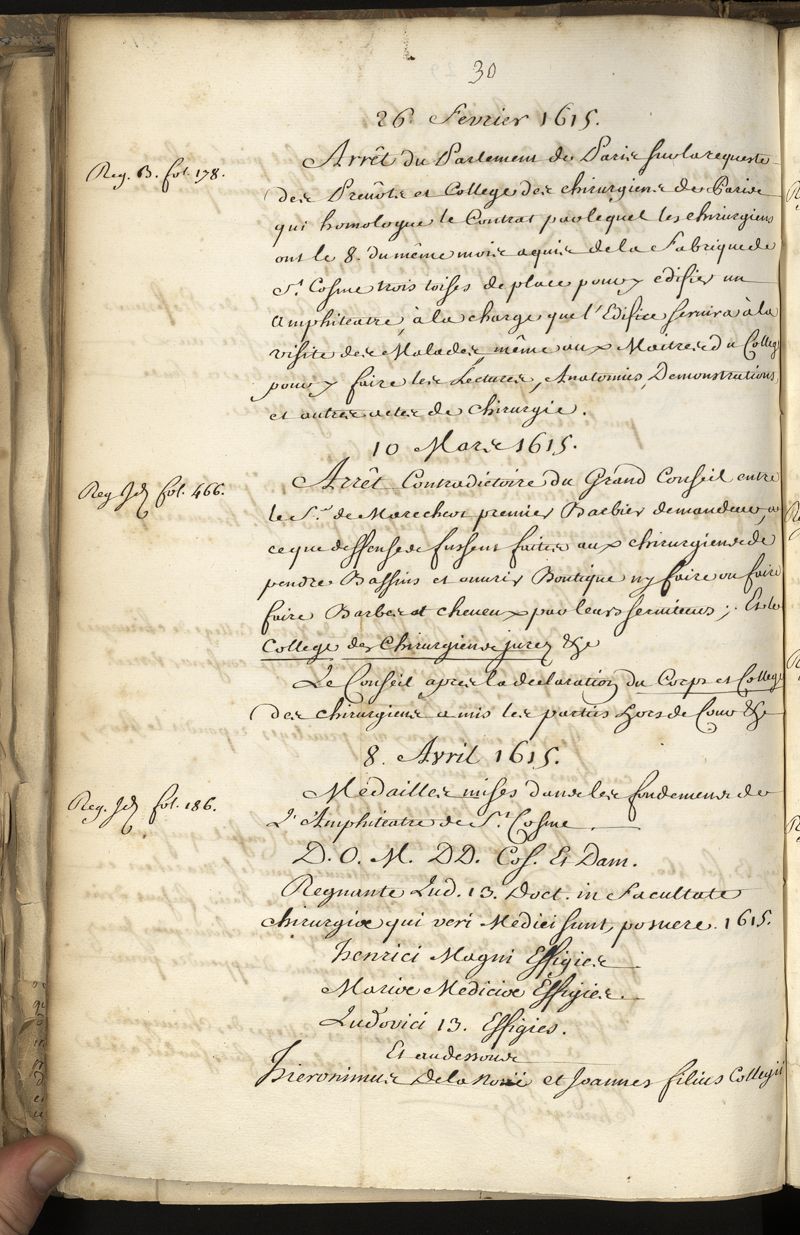 30
26 Fevrier 1615.
Reg. B. fol. 178.
Arrêt du Parlement de Paris sur la requeste
des Prevôts et College des chirurgiens de Paris
qui homologue le Contrat par lequel les chirurgiens
ont le 8. du même mois aquis de la Fabrique de
St. Cosme trois toises de place pour y edifier un
Amphiteatre, à la charge que l'Edifice servira à la
visite des Malades, même aux Maitres du College
pour y faire les Lectures, Anatomies, Demonstrations,
et autres actes de chirurgie.
10 Mars 1615.
Reg Jd fol. 466.
Arrêt Contradictoire du Grand Conseil entre
le Sr. de Marechot premier Barbier demandeur, a
ce que deffenses fussent faites aux chirurgiens de
pendre Bassins et ouvrir Boutique ny faire ou faire
faire Barbes et cheveux par leurs serviteurs; Et le
College des Chirurgiens jurez &c
Le Conseil apres la declaration du Corps et College
des chirurgiens a mis les parties hors de Cour &c
8. Avril 1615.
Reg. Jd fol. 186.
Médailles mises dans les fondemens de
L'Amphiteatre de St. Cosme.
D. O. M. DD. Cos. Et Dam.
Regnante Lud. 13. Doct. in Facultate
chirurgiæ qui veri Medici sunt, posuere. 1615.
Henrici Magni Effigies
Mariæ Medicix Effigies.
Ludovici 13. Effigies.
Et au dessous
Hieronimus de la Noüe et Joannes filius Collegii